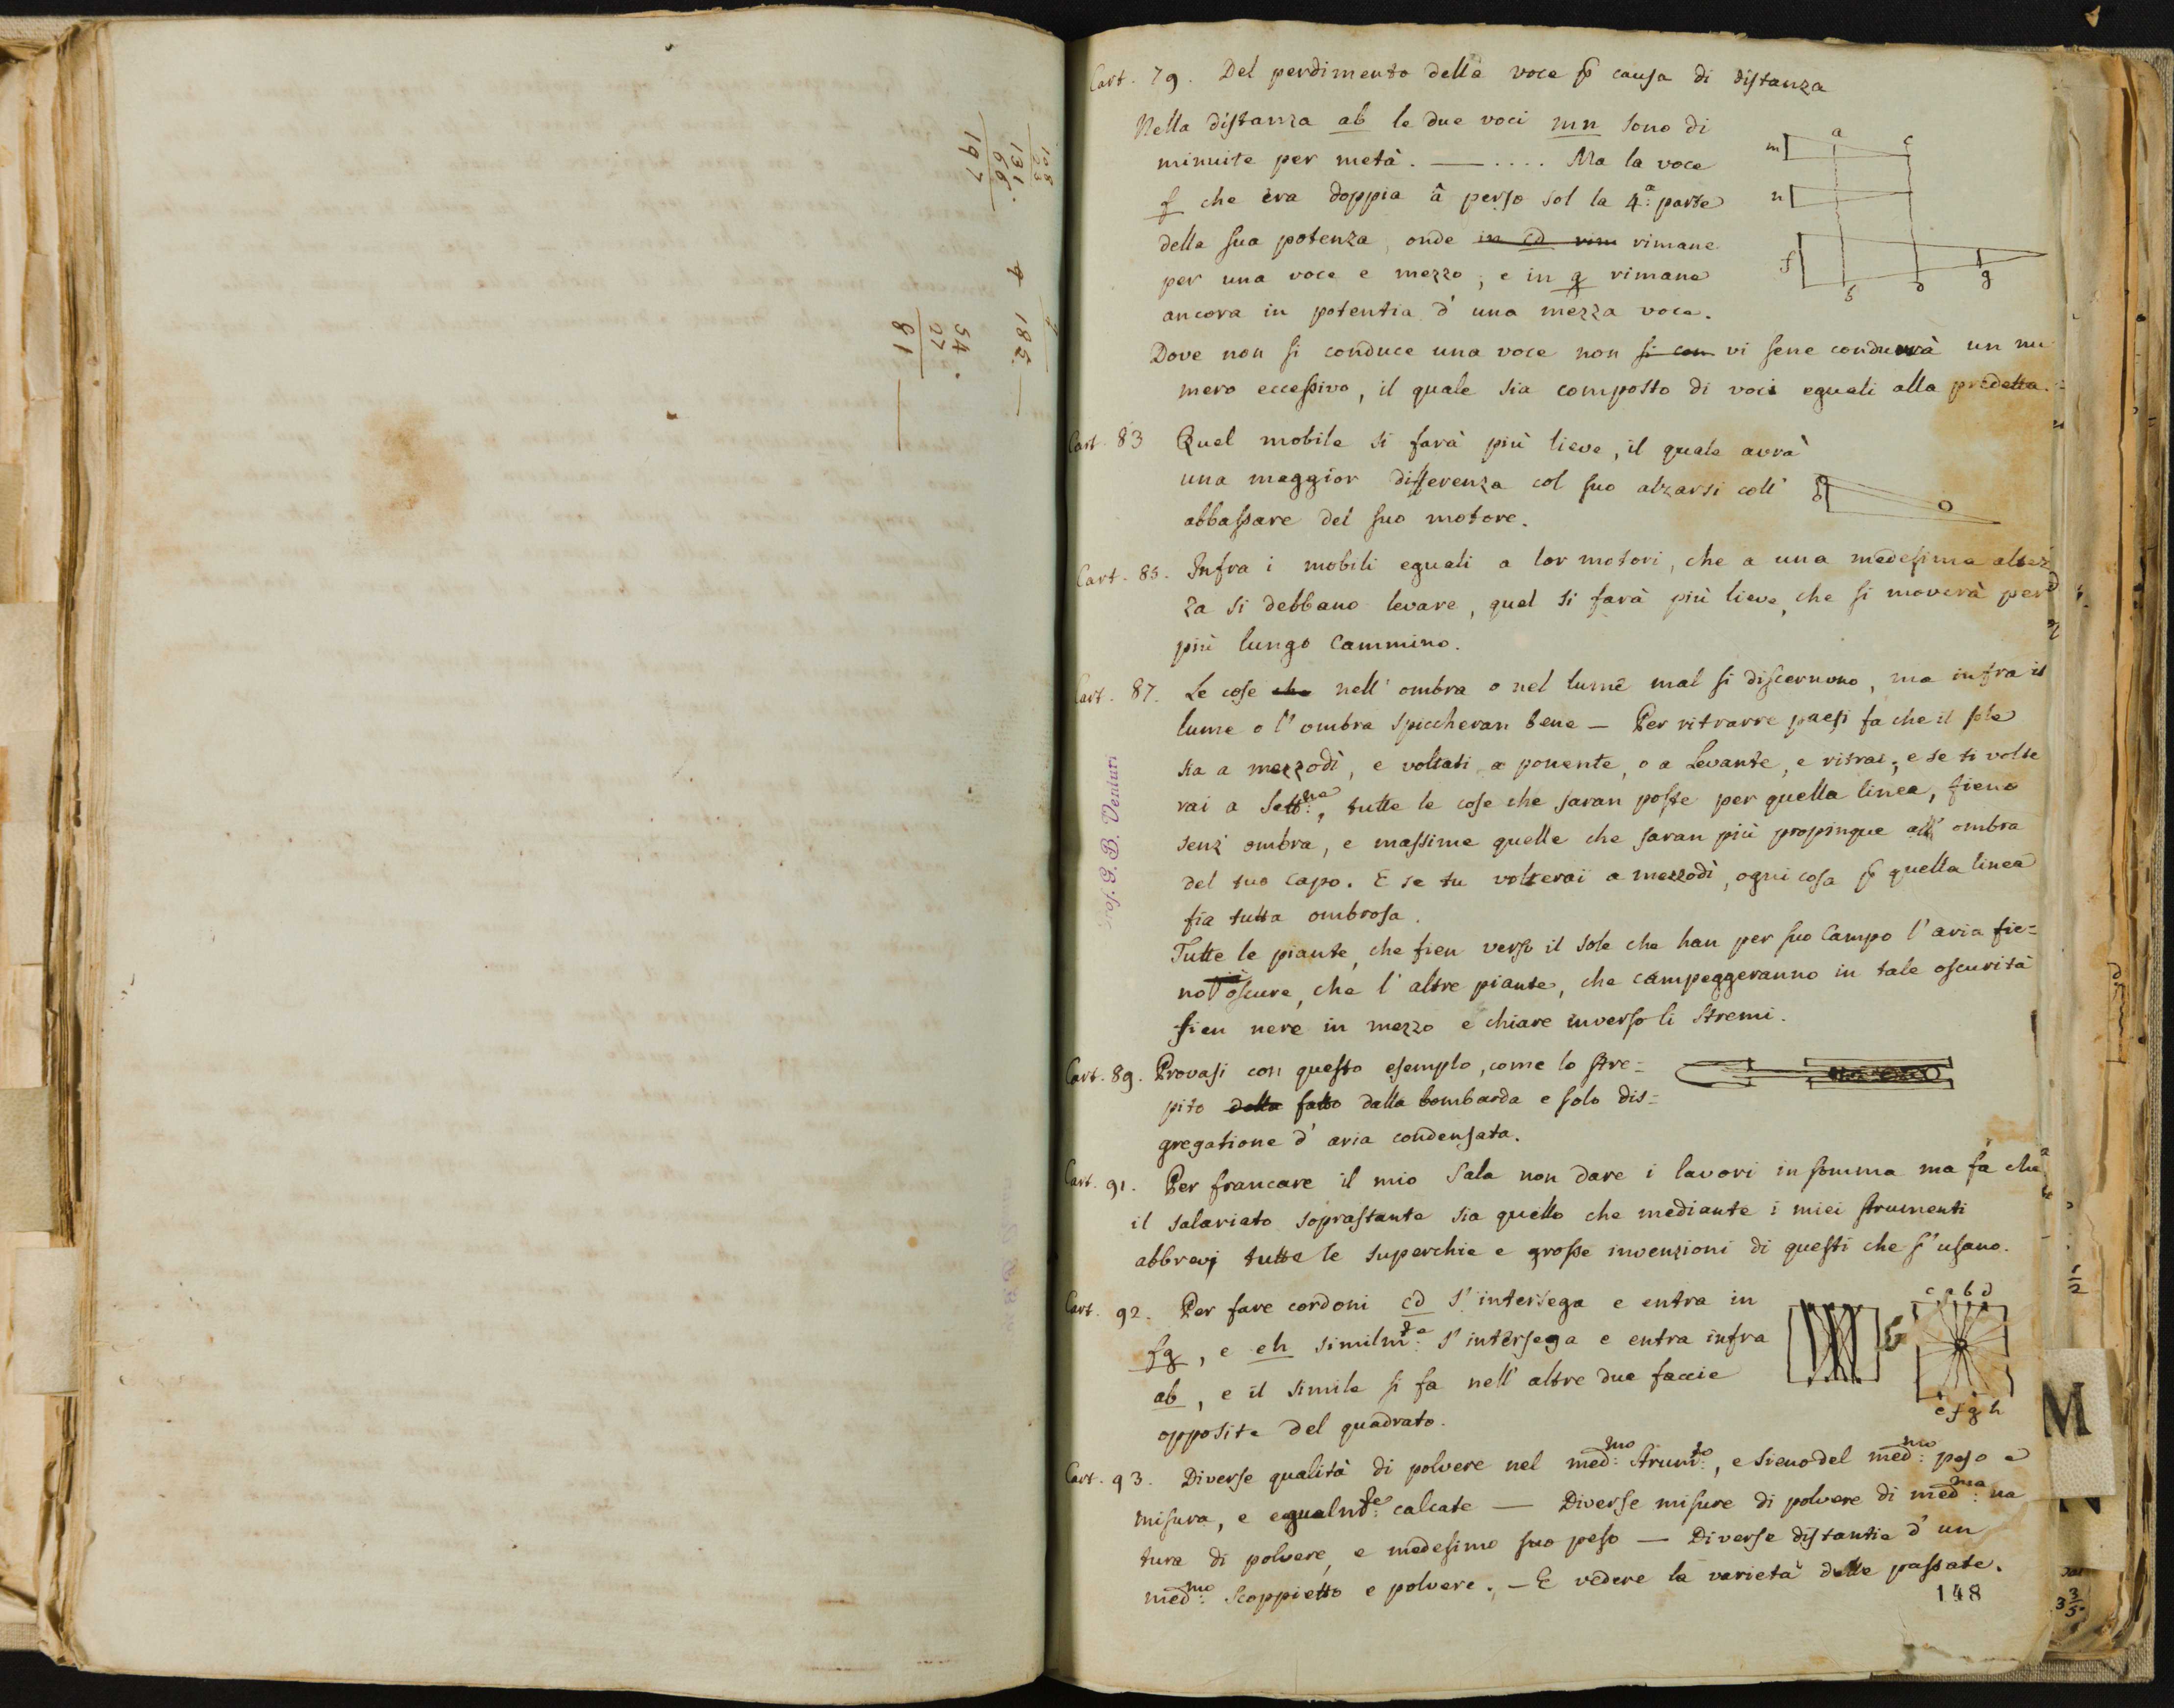 108
23
131.
66.
197
9 185.
54.
27
81
Cart. 79. Del perdimento della voce p causa di distanza
Nella distanza ab le due voci mn sono di
minuite per metà. — .... Ma la voce
f che era doppia â perso sol la 4.a parte
della sua potenza, onde in cd rim rimane
per una voce e mezzo; e in g rimane
ancora in potentia d' una mezza voce.
Dove non si conduce una voce non si con vi sene condurrà un nu
mero eccessivo, il quale sia composto di voci eguali alla predetta.
m a c
n
f b d g
Cart. 83 Quel mobile si farà più lieve, il quale avrà
una maggior differenza col suo alzarsi coll'
abbassare del suo motore.
Cart. 85. Infra i mobili eguali a lor motori, che a una medesima altez
za si debbano levare, quel si farà più lieve, che si moverà per
più lungo cammino.
Cart. 87. Le cose che nell' ombra o nel lume mal si discernono, ma infra il
lume o l' ombra spiccheran bene — Per ritrarre paesi fa che il sole
sia a mezzodì, e voltati a ponente, o a Levante, e ritrai; e se ti volte
rai a Sett:ne, tutte le cose che saran poste per quella linea, fieno
senz' ombra, e massime quelle che saran più propinque all' ombra
del tuo capo. E se tu volterai a mezzodì, ogni cosa p quella linea
fia tutta ombrosa.
Tutte le piante, che fien verso il sole che han per suo Campo l' aria fie=
no più oscure, che l' altre piante, che campeggeranno in tale oscurità
fien nere in mezzo e chiare inverso li stremi.
Prof. G. B. Venturi
Cart. 89. Provasi con questo esemplo, come lo stre=
pito della fatto dalla bombarda e solo dis=
gregatione d' aria condensata.
Cart. 91. Per francare il mio Sala non dare i lavori in somma ma fa che
il salariato soprastante sia quello che mediante i miei strumenti
abbrevj tutte le superchie e grosse invenzioni di questi che s' usano.
Cart. 92. Per fare cordoni cd s' intersega e entra in
fg, e eh similm:te s' intersega e entra infra
ab, e il simile si fa nell' altre due faccie
opposite del quadrato.
c a b d
e f g h
Cart. 93. Diverse qualità di polvere nel med:mo strum:to, e sieno del med:mo peso e
misura, e egualm:te calcate — Diverse misure di polvere di med:ma na
tura di polvere, e medesimo suo peso — Diverse distantie d' un
med:mo scoppietto e polvere. — E vedere la varietà delle passate.
148
M
1/2
3 3/5